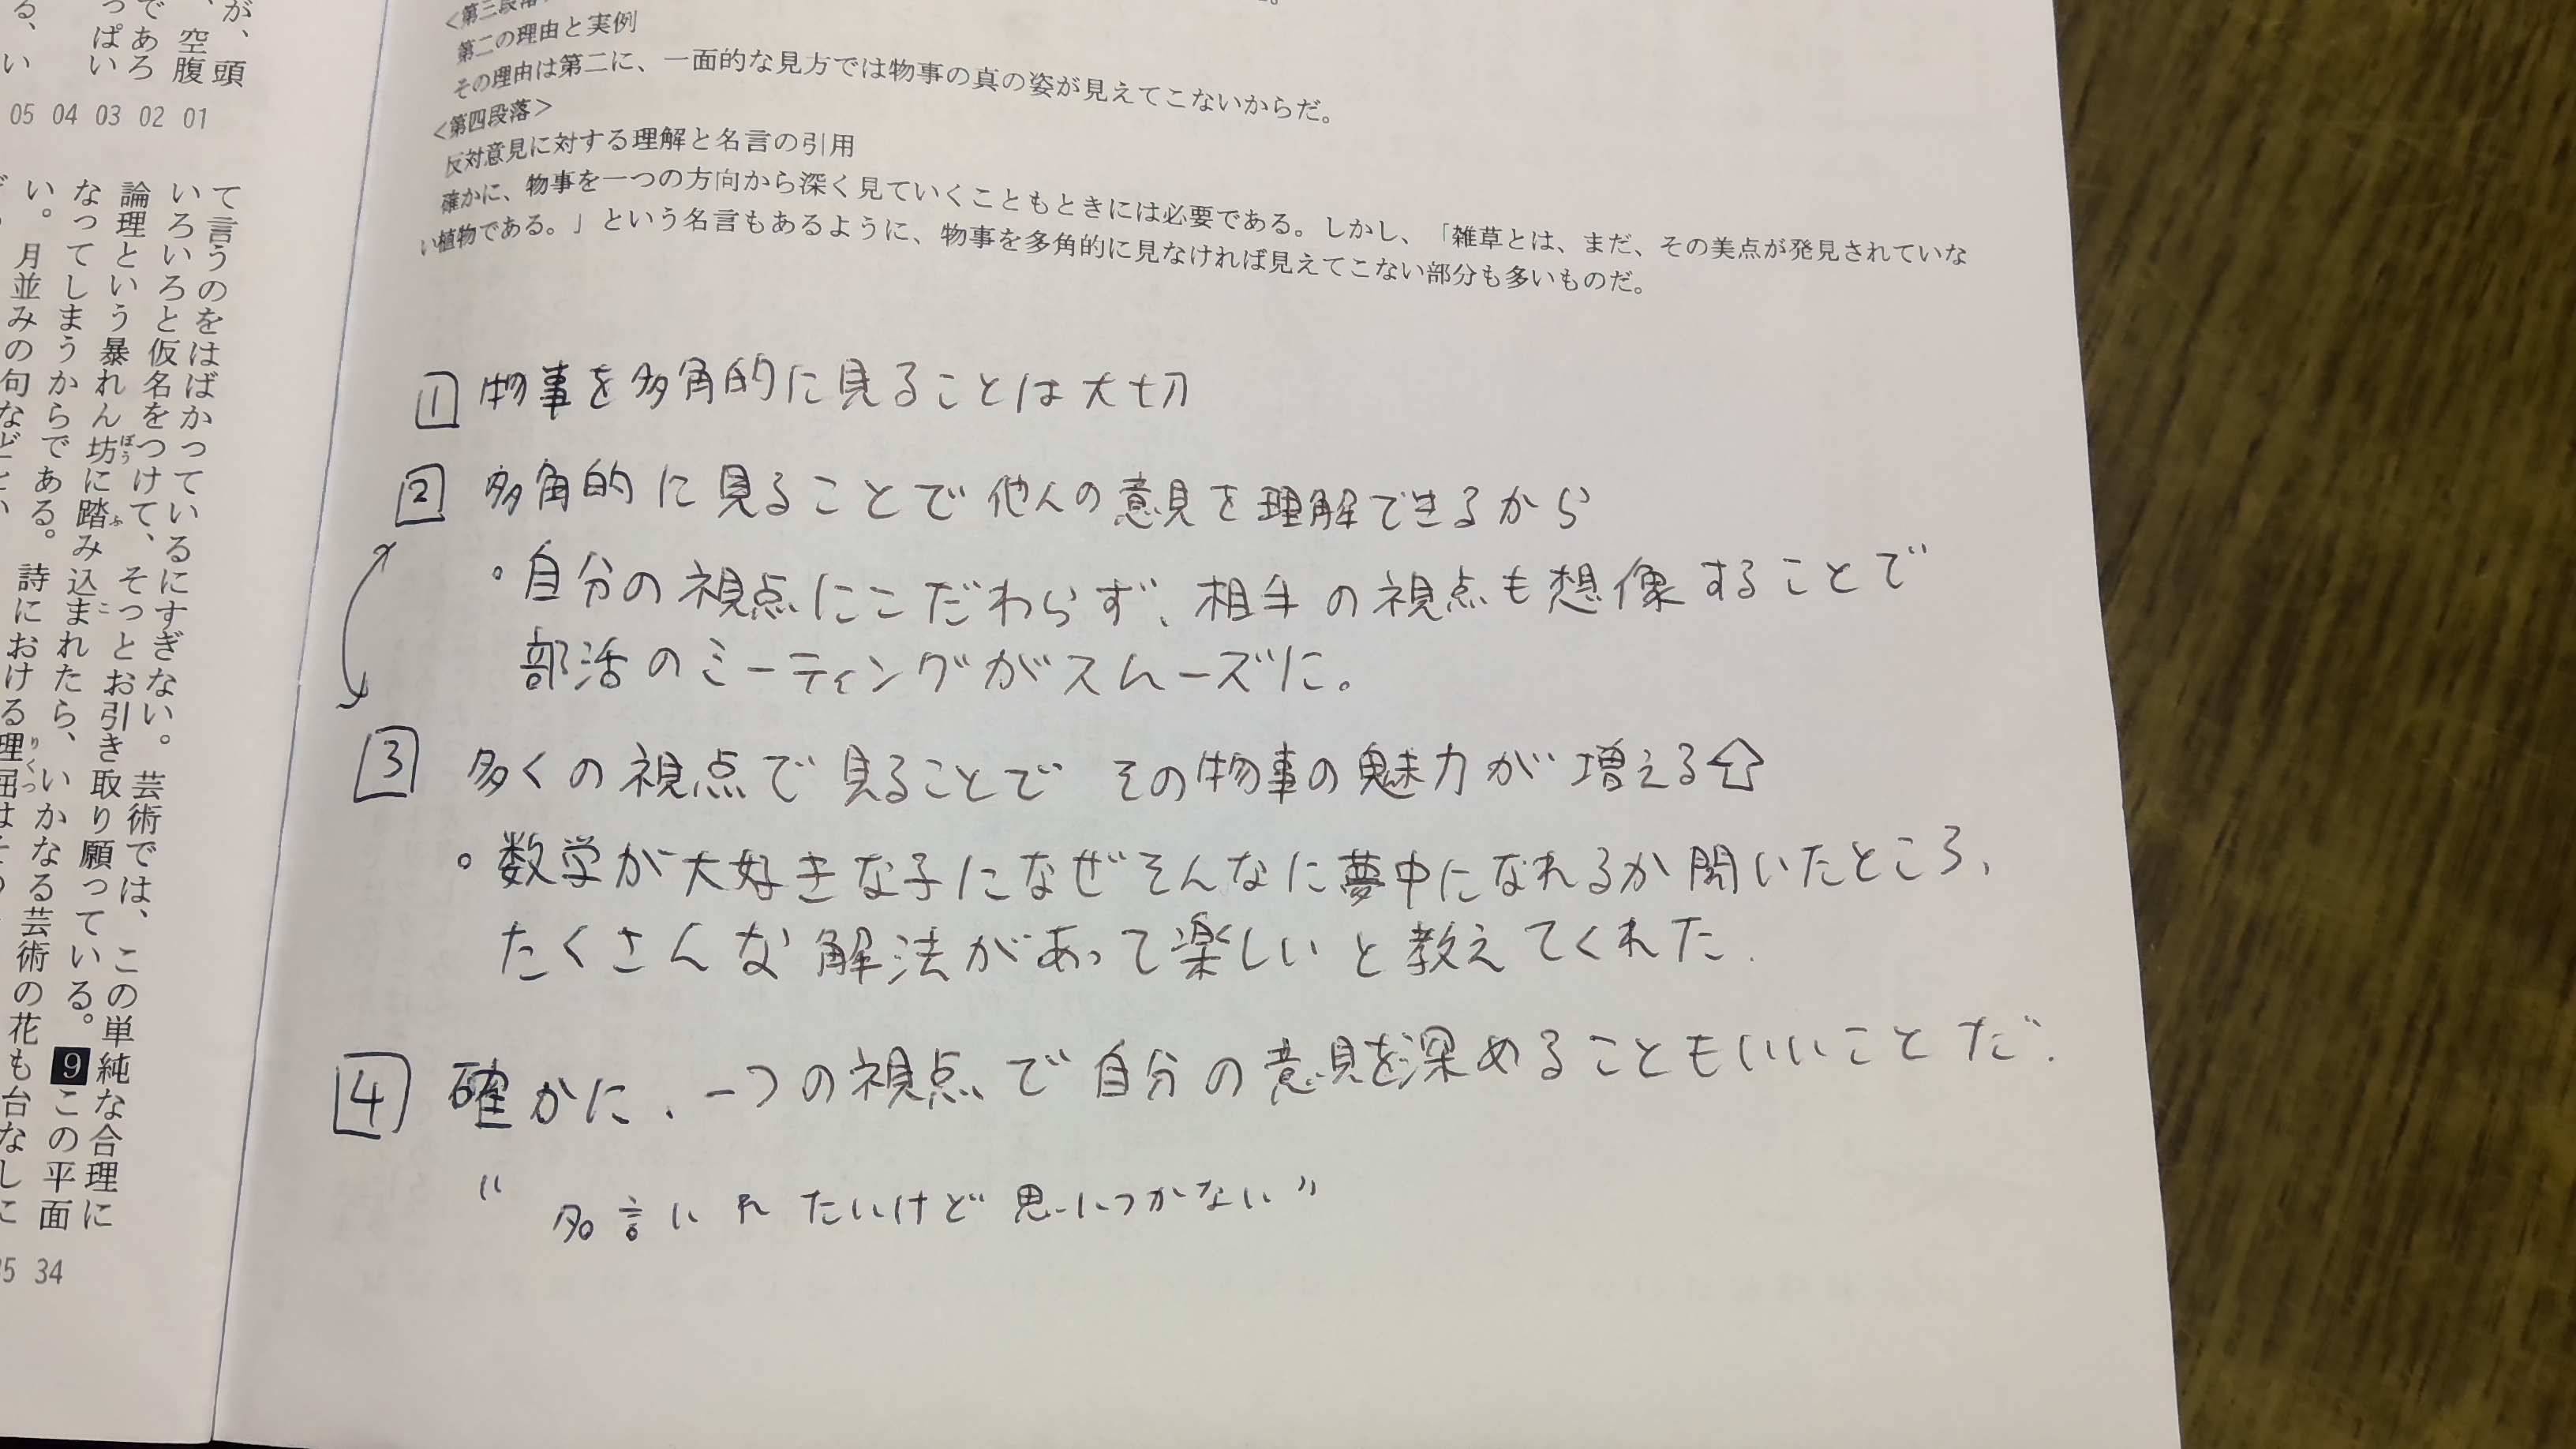 <第三段落
第二の理由と実例
その理由は第二に、一面的な見方では物事の真の姿が見えてこないからだ。
<第四段落>
反対意見に対する理解と名言の引用
確かに、物事を一つの方向から深く見ていくこともときには必要である。しかし、「雑草とは、まだ、その美点が発見されていな
い植物である。」という名言もあるように、物事を多角的に見なければ見えてこない部分も多いものだ。
1 物事を多角的に見ることは大切
2 多角的に見ることで他人の意見を理解できるから
・自分の視点にこだわらず、相手の視点も想像することで
部活のミーティングがスムーズに。
3 多くの視点で見ることで その物事の魅力が増える⇧
・数学が大好きな子になぜそんなに夢中になれるか聞いたところ、
たくさんな解法があって楽しいと教えてくれた.
4 確かに、一つの視点で自分の意見を深めることもいいことだ.
"名言いれたいけど思いつかない"
が、頭
、空腹
であろ
っぱい
る、い
05 04 03 02 01
て言うのをはばかっているにすぎない。芸術では、この単純な合理に
いろいろと仮名をつけて、そっとお引き取り願っている。9この平面
論理という暴れん坊に踏み込まれたら、いかなる芸術の花も台なしに
なってしまうからである。詩における理屈は
い。月並みの句など
35 34